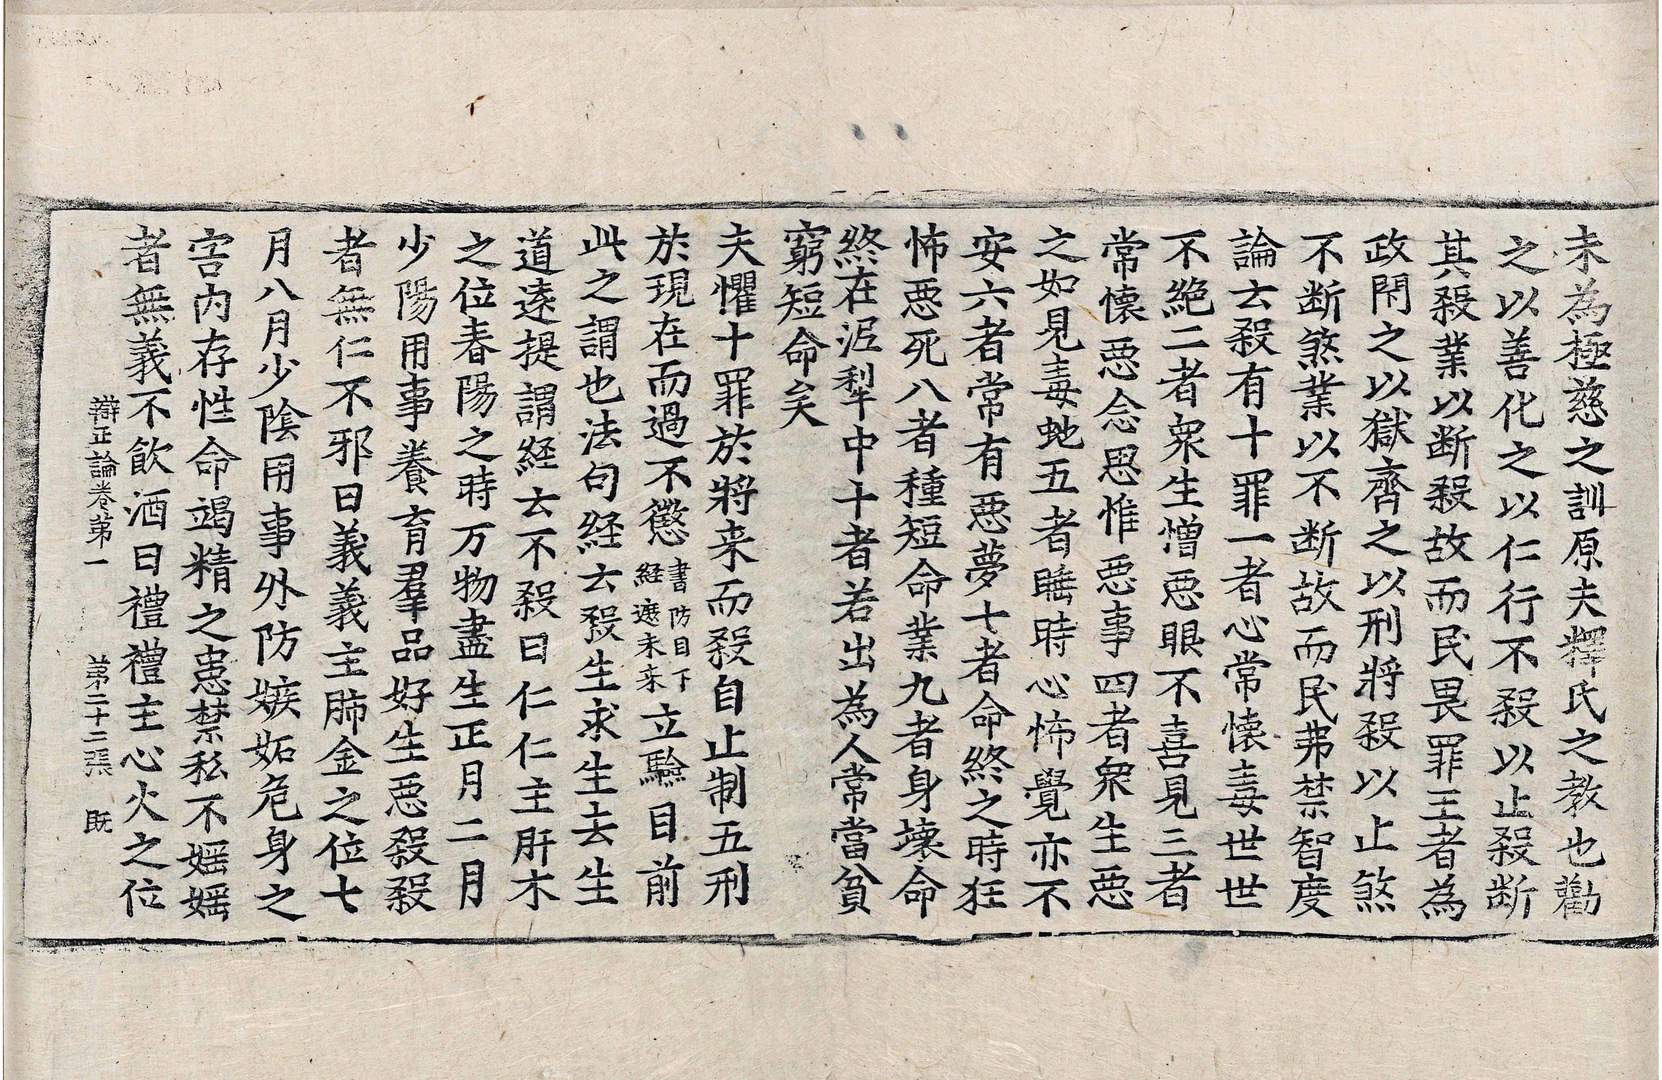 未為極慈之訓原夫釋氏之教也勸
之以善化之以仁行不殺以止殺断
其殺業以断殺故而民畏罪王者為
政閇之以獄齊之以刑將殺以止煞
不断煞業以不断故而民弗禁智度
論云殺有十罪一者心常懐毒世世
不絶二者衆生憎惡眼不喜見三者
常懐惡念思惟惡事四者衆生惡
之如見毒虵五者睡時心怖覺亦不
安六者常有惡夢七者命終之時狂
怖惡死八者種短命業九者身壊命
終在泥犁中十者若出為人常當貧
窮短命矣
夫懼十罪於將来而殺自止制五刑
於現在而過不懲書防目下経遮未来立驗目前
此之謂也法句経云殺生求生去生
道遠提謂経云不殺曰仁仁主肝木
之位春陽之時万物盡生正月二月
少陽用事養育羣品好生惡殺殺
者無仁不邪曰義義主肺金之位七
月八月少陰用事外防嫉妬危身之
害内存性命竭精之患禁私不婬婬
者無義不飲酒曰禮禮主心火之位
辯正論卷苐一　苐二十二張　既